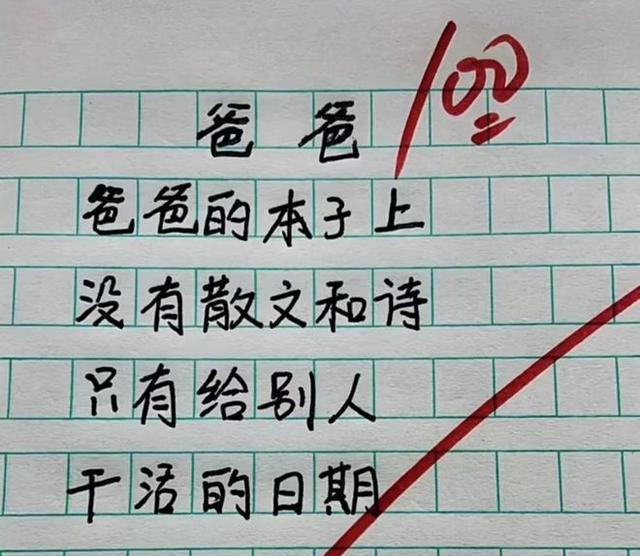 爸爸
100
爸爸的本子上
没有散文和诗
只有给别人
干活的日期